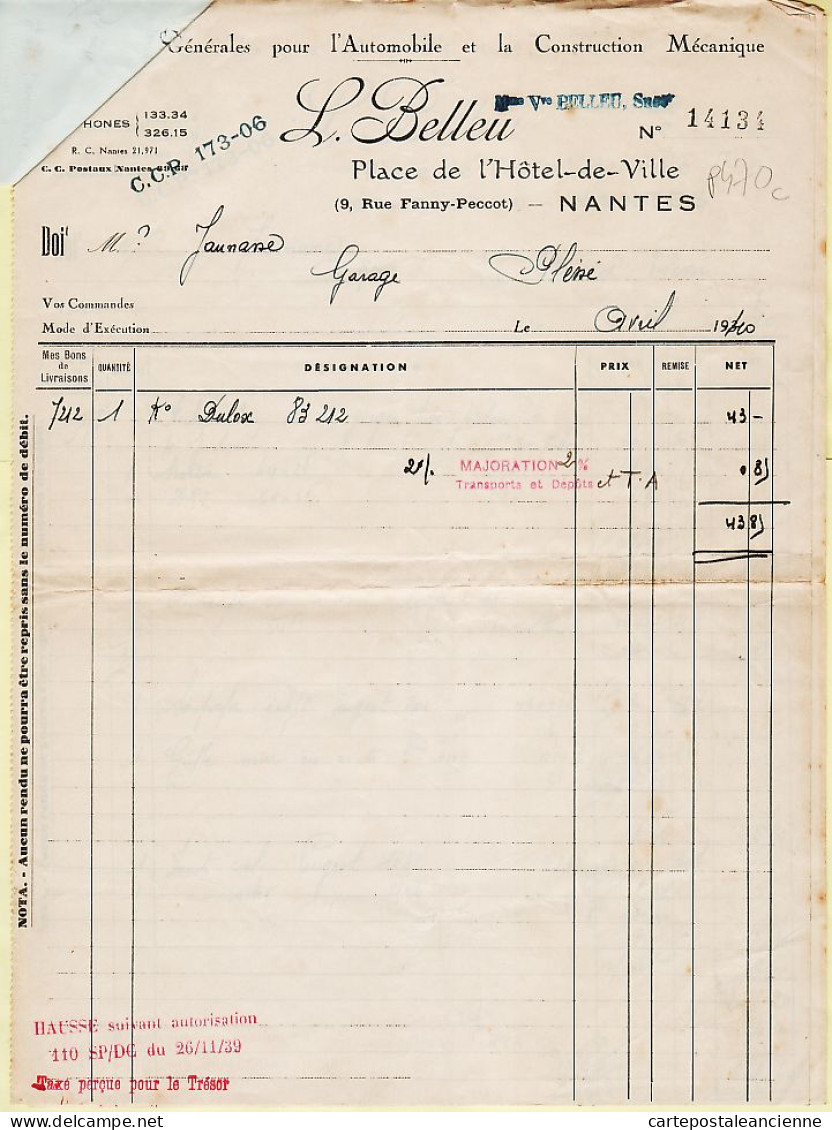 Générales pour l'Automobile et la Construction Mécanique
HONES 133.34
326.15
R. C. Nantes 21,971
C. C. Postaux Nantes
C.C.P. 173-06
L. Belleu
Mme Vve BELLEU, Succr
N° 14134
Place de l'Hôtel-de-Ville
(9, Rue Fanny-Peccot) — NANTES
Doit M.
Garage Plessé
Vos Commandes
Mode d'Exécution Le Avril 1940
Mes Bons de Livraisons QUANTITÉ DÉSIGNATION PRIX REMISE NET
7212 1 K° Dulox 83 212 43 -
2% MAJORATION 2 % et T.A 0 85
Transports et Dépôts
43 85
NOTA. - Aucun rendu ne pourra être repris sans le numéro de débit.
HAUSSE suivant autorisation
110 SP/DC du 26/11/39
Taxe perçue pour le Trésor
cartepostaleancienne